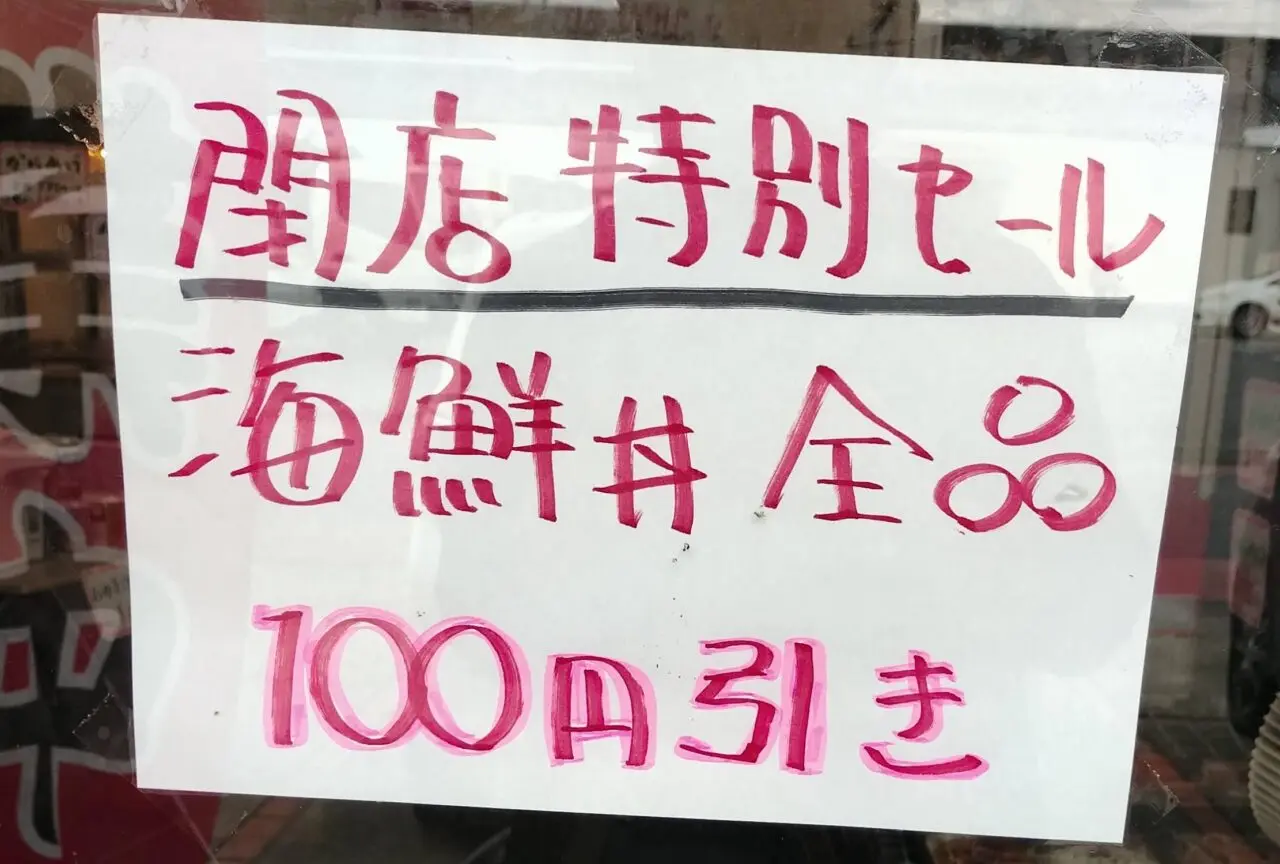 開店特別セール
海鮮丼 全品
100円引き